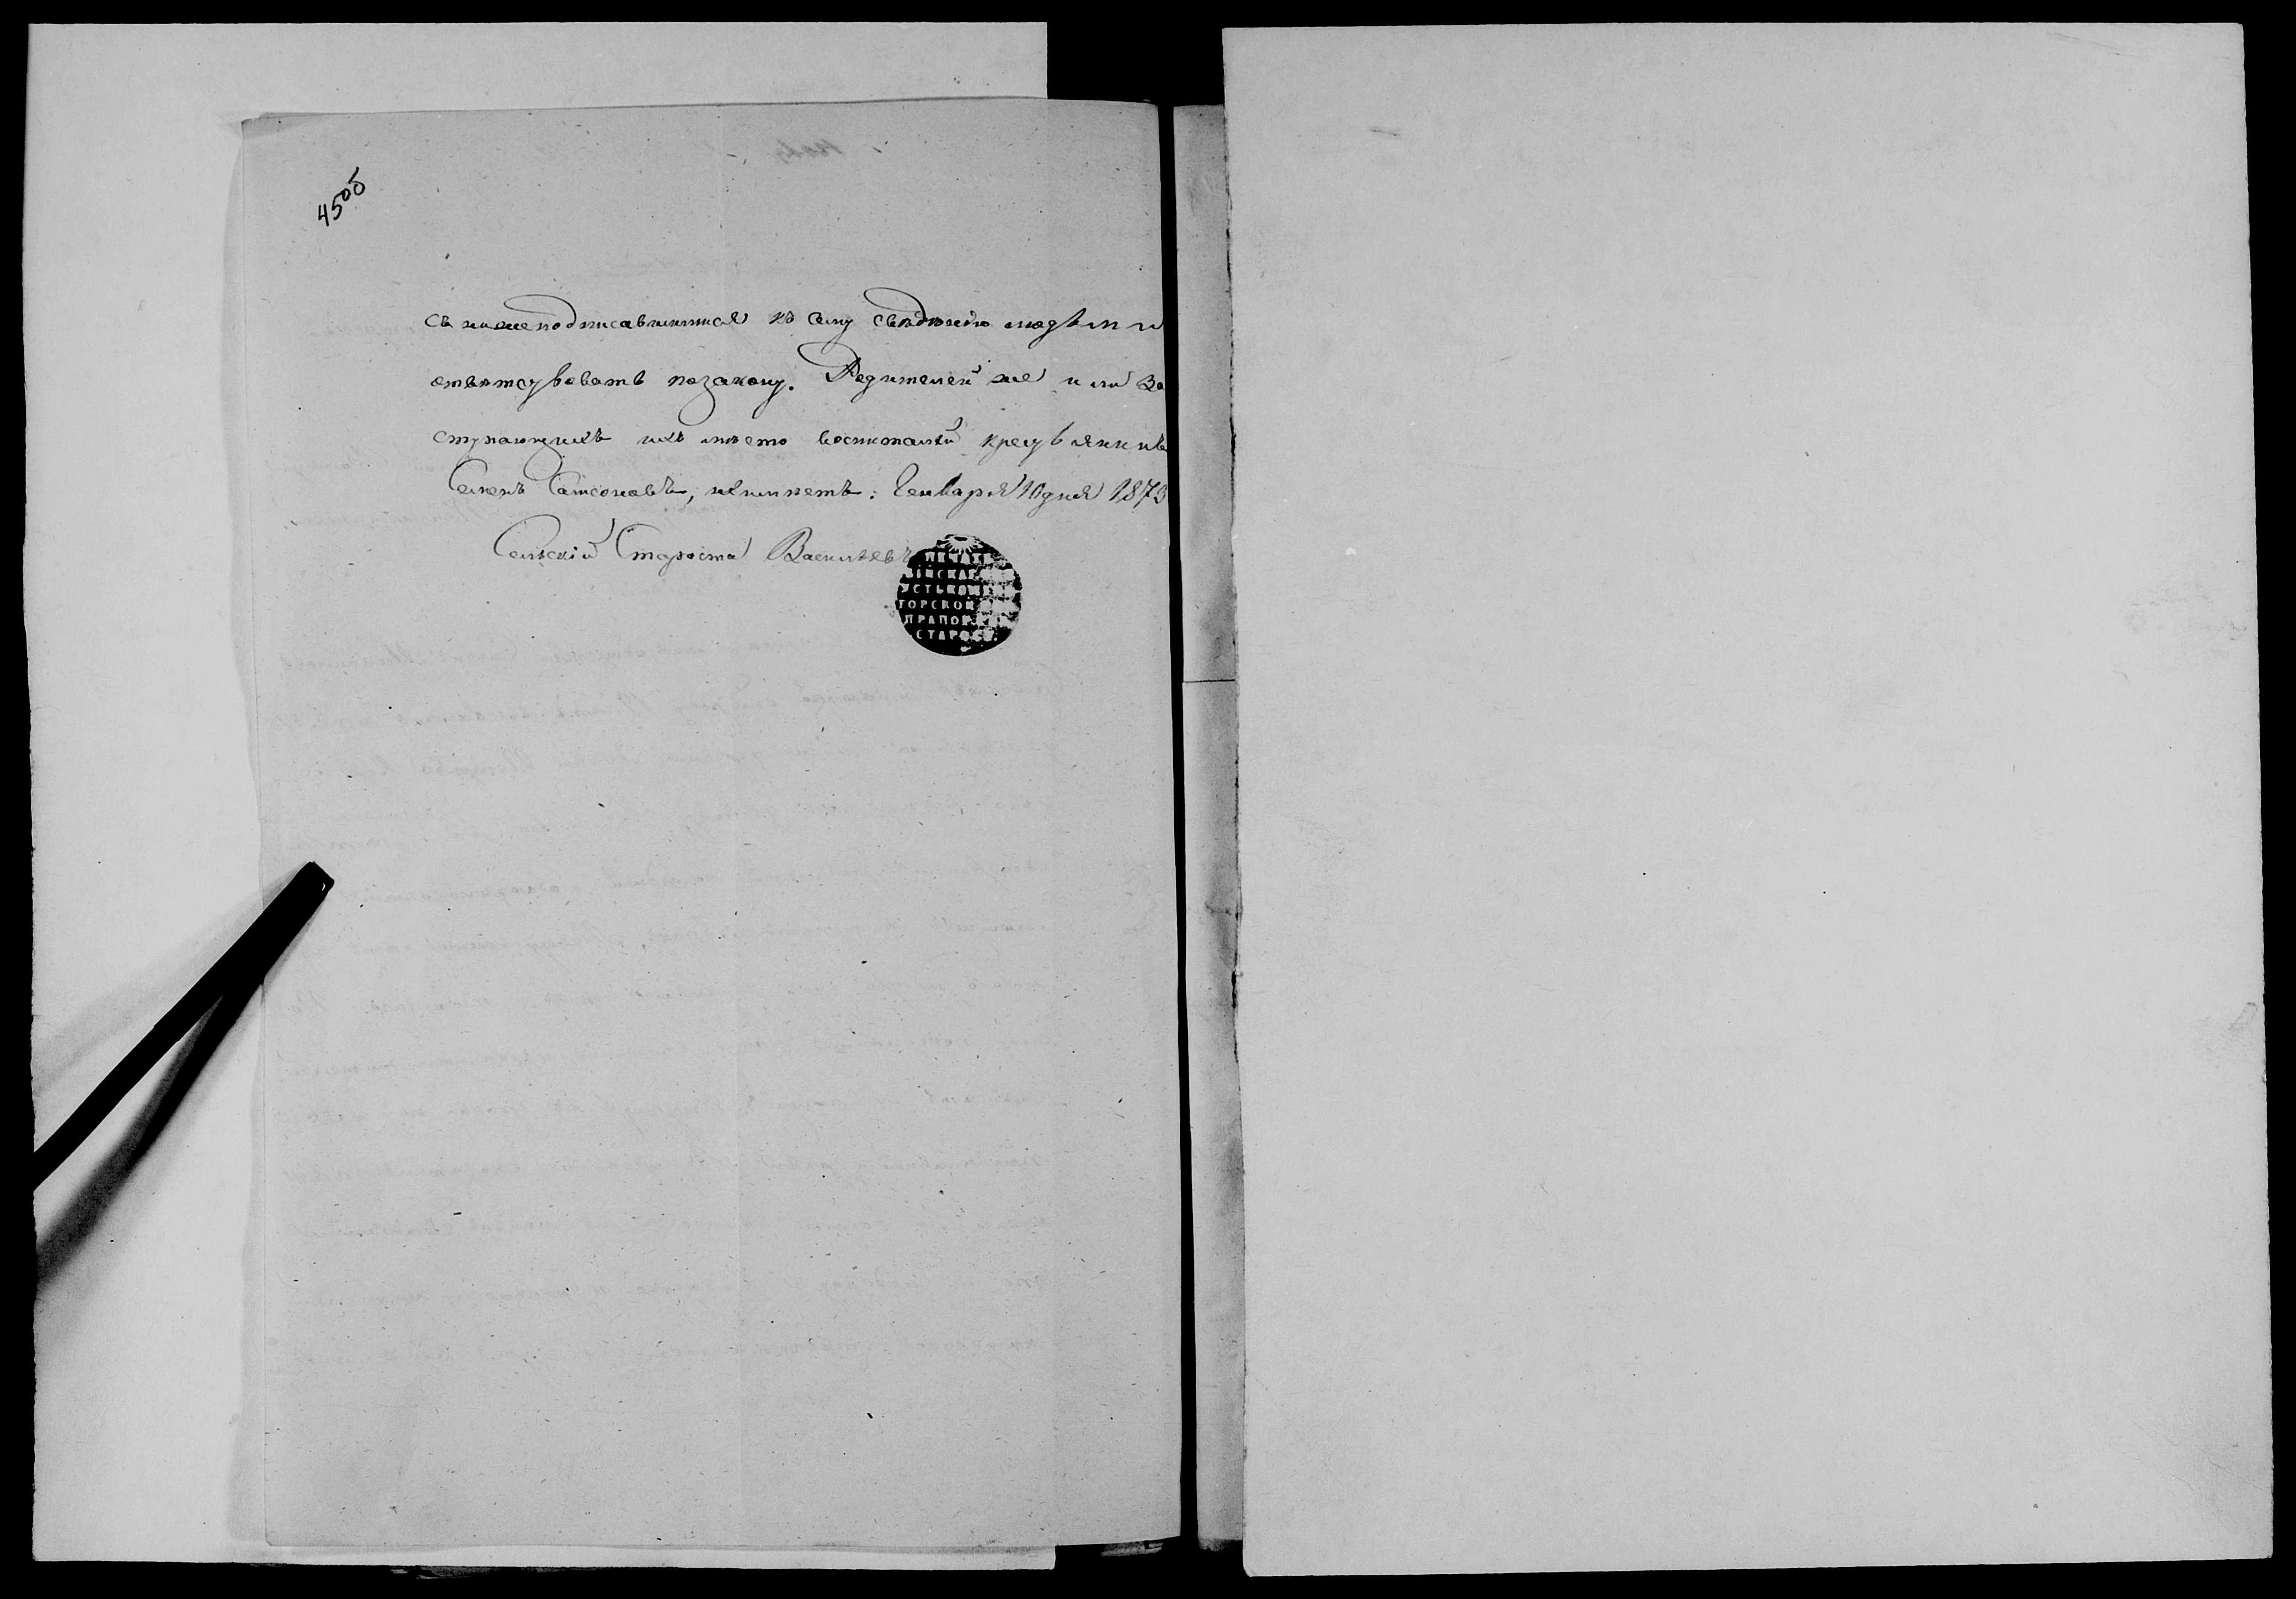 450б
съ нижеподписавшимися къ сему сведению людьми
ответсувовать позакону. Родителей же или за
ступающихъ ихъ место крестьянинъ
Семенъ Самсоновъ, неимеетъ: Генваря 10 дня 1873
Сельскій Староста Васильевъ
ПЕЧАТЬ
УСТЬКАМ
ТОРСКОЙ
ПРАПОР
СТАРОС